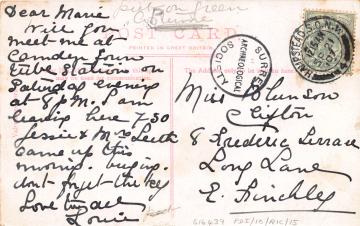 Dear Marie
Will you
meet me at
Camden Town
tube station on
Saturday evening
at 8 p.m. I am
leaving here 7.30
Jessie & Mrs
came up this
morng.
dont forget the key
Love to you all
Louie
POST CARD
PRINTED IN GREAT BRITAIN
SURREY
ARCHAEOLOGICAL
SOCIETY
HAMPSTEAD N.W.
Miss Munson
Clifton
8 Frederic Terrace
Long Lane
E. Finchley
G14439 PDI/10/RIC/15